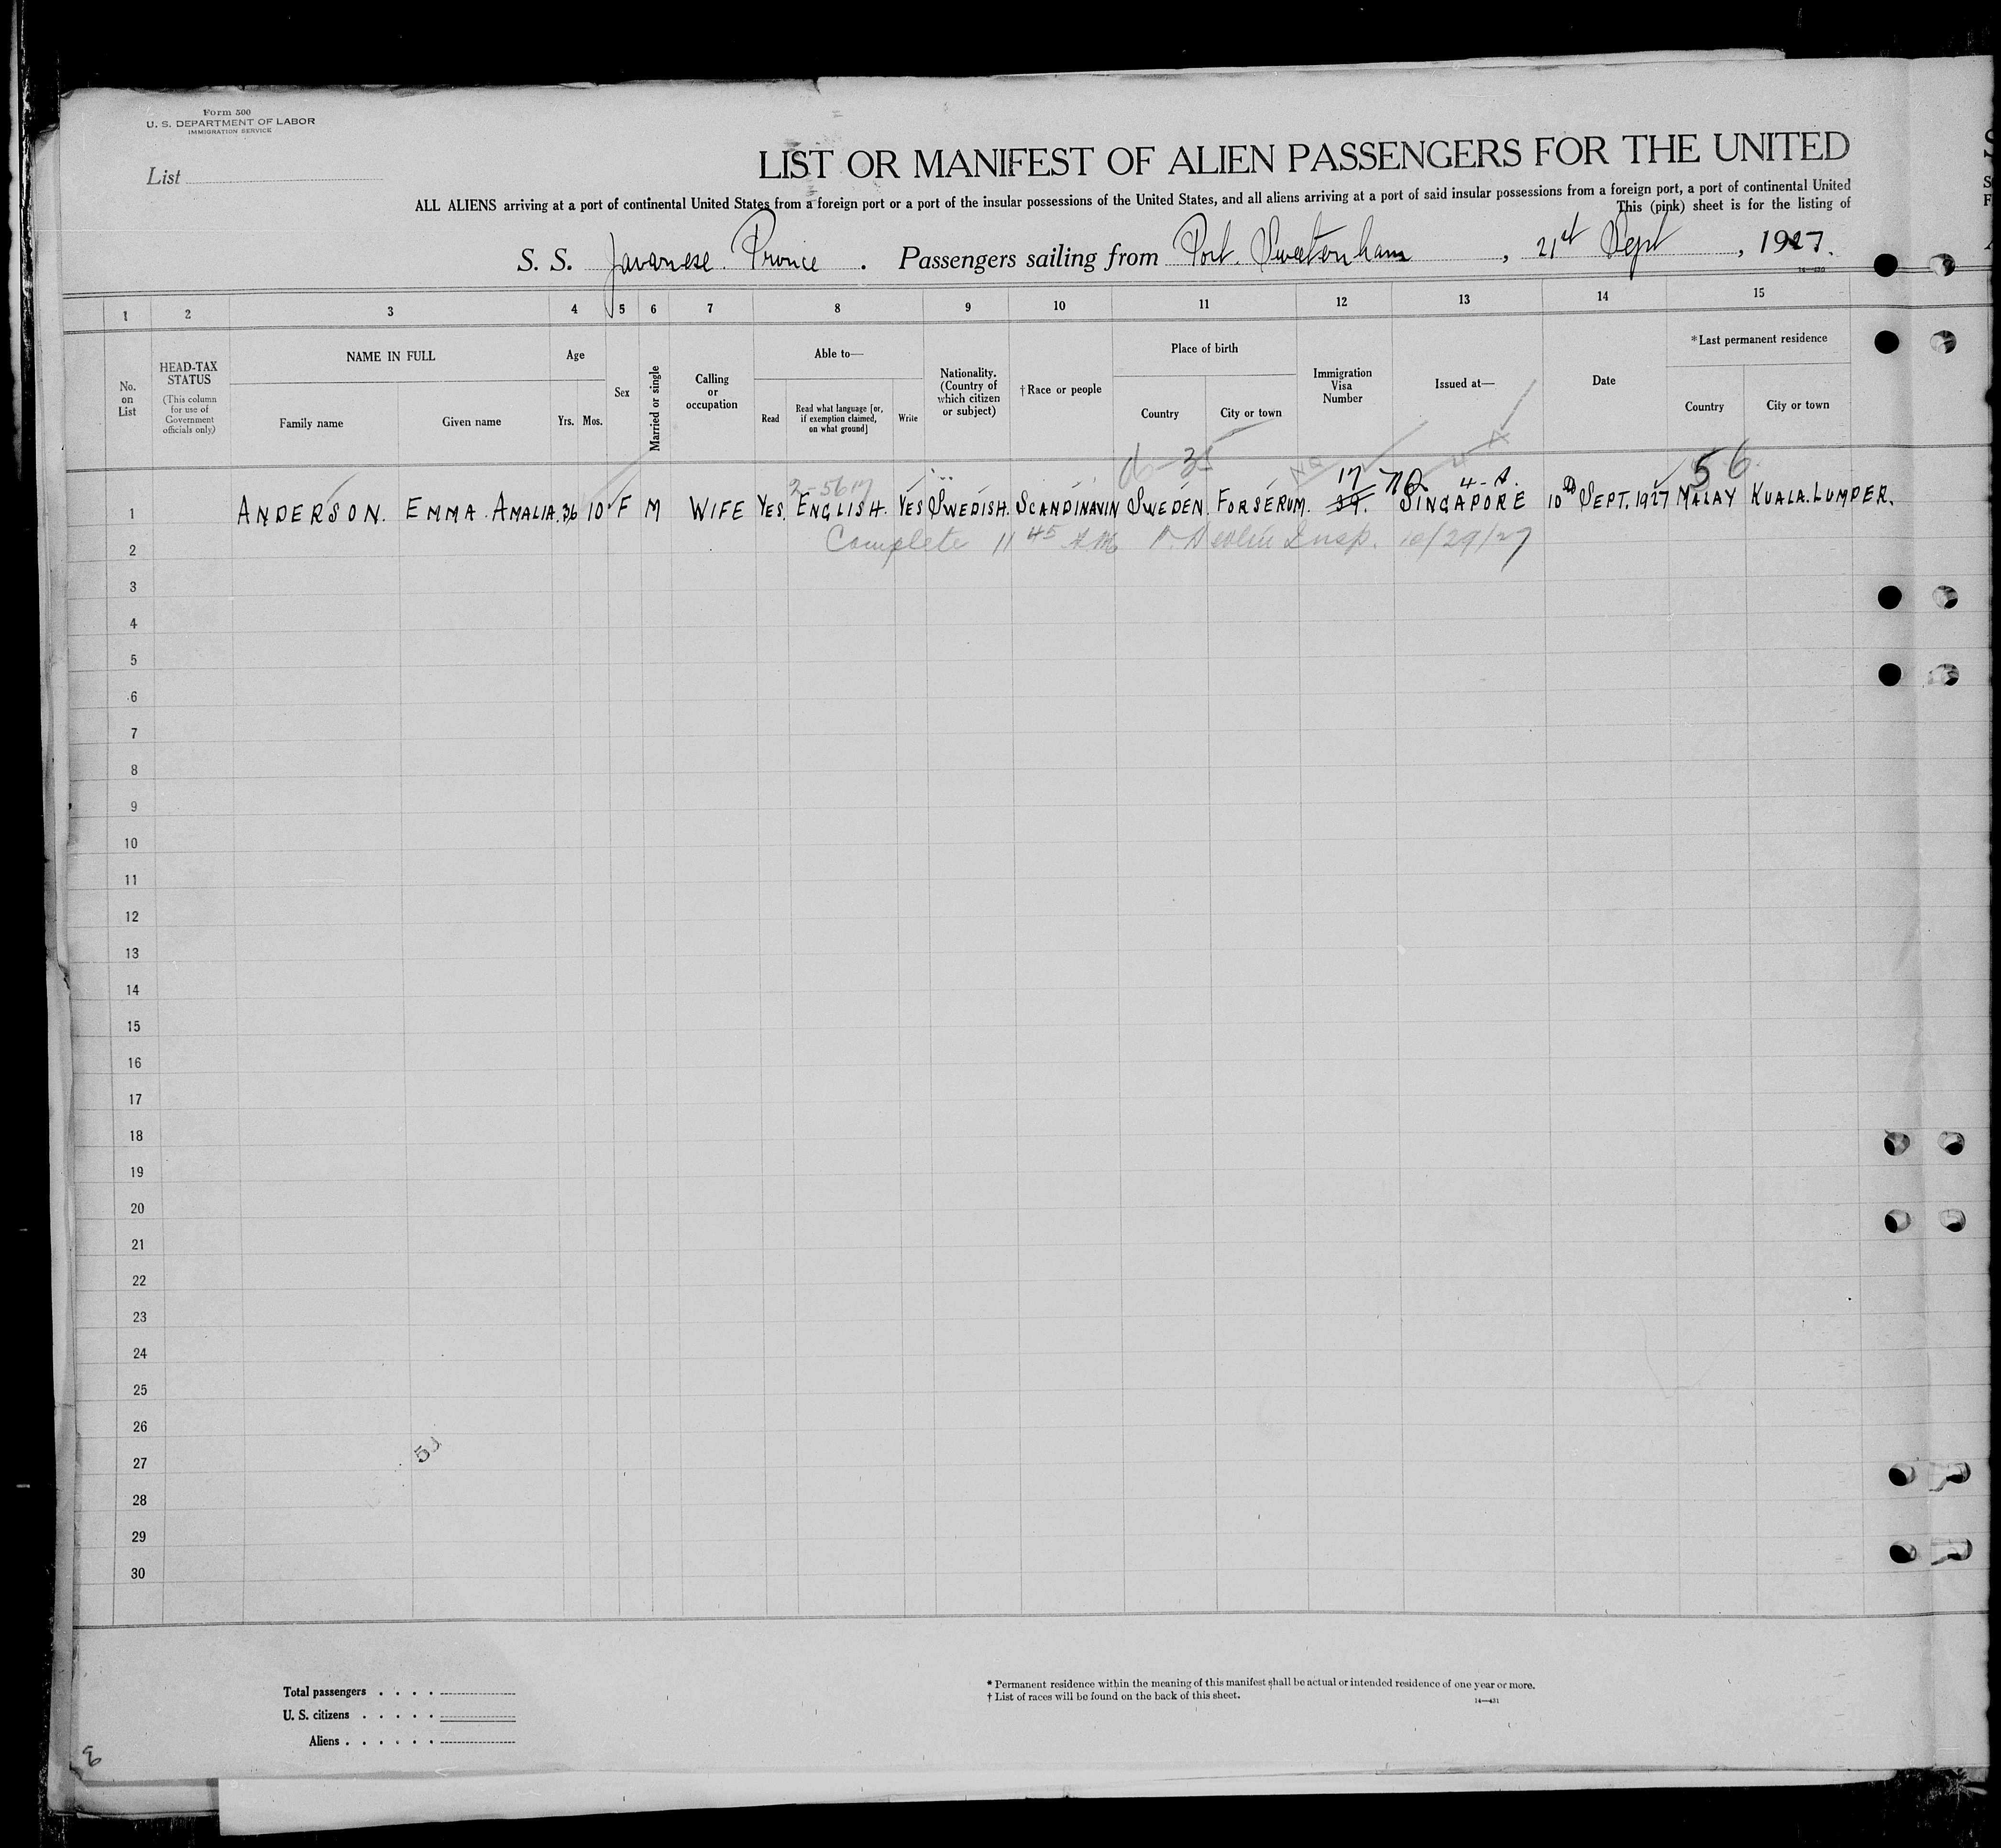 Form 500
U. S. DEPARTMENT OF LABOR
IMMIGRATION SERVICE
List
LIST OR MANIFEST OF ALIEN PASSENGERS FOR THE UNITED
ALL ALIENS arriving at a port of continental United States from a foreign port or a port of the insular possessions of the United States, and all aliens arriving at a port of said insular possessions from a foreign port, a port of continental United
This (pink) sheet is for the listing of
S. S. Javanese Prince . Passengers sailing from Port. Swetenham , 21st Sept , 1927.
1 2 3 4 5 6 7 8 9 10 11 12 13 14 15
No. on List
HEAD-TAX STATUS
(This column for use of Government officials only)
NAME IN FULL
Family name
Given name
Age
Yrs. Mos.
Sex
Married or single
Calling or occupation
Able to—
Read
Read what language [or, if exemption claimed, on what ground]
Write
Nationality. (Country of which citizen or subject)
† Race or people
Place of birth
Country
City or town
Immigration Visa Number
Issued at—
Date
* Last permanent residence
Country
City or town
2-5617
17 NQ 4-A. 56
1 ANDERSON. EMMA AMALIA. 36 10 F M WIFE YES. ENGLISH. YES SWEDISH. SCANDINAVIN SWEDEN. FORSERUM. 39. SINGAPORE 10th SEPT. 1927 MALAY KUALA.LUMPER.
Complete 11 45 AM Devlin Insp. 10/29/27
2
3
4
5
6
7
8
9
10
11
12
13
14
15
16
17
18
19
20
21
22
23
24
25
26
27
28
29
30
Total passengers . . . .
U. S. citizens . . . . .
Aliens . . . . . .
* Permanent residence within the meaning of this manifest shall be actual or intended residence of one year or more.
† List of races will be found on the back of this sheet.
14—431